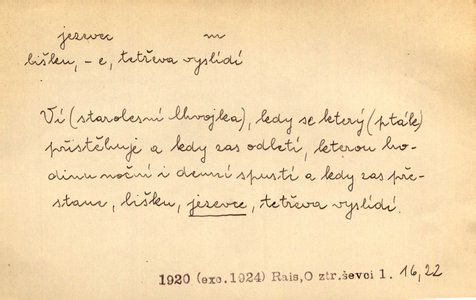 jezevec m
lišku, – e, tetřeva vyslídí
Ví (starolesní Chvojka), kdy se který (pták)
přistěhuje a kdy zas odletí, kterou ho-
dinu noční i denní spustí a kdy zas pře-
stane, lišku, jezevce, tetřeva vyslídí.
1920 (exc.1924) Rais,O ztr.ševci 1. 16,22